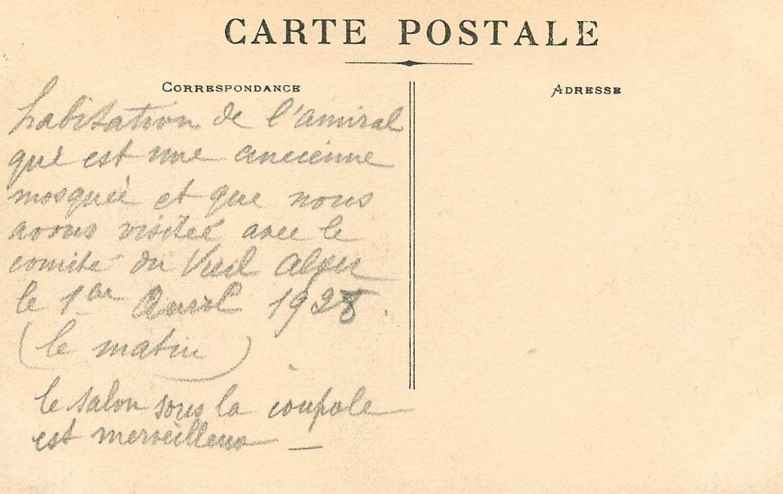 CARTE POSTALE
CORRESPONDANCE
ADRESSE
habitation de l'amiral
qui est une ancienne
mosquée et que nous
avons visitée avec le
comité du Vieil Alger
le 1er Avril 1928.
(le matin)
le salon sous la coupole
est merveilleux —